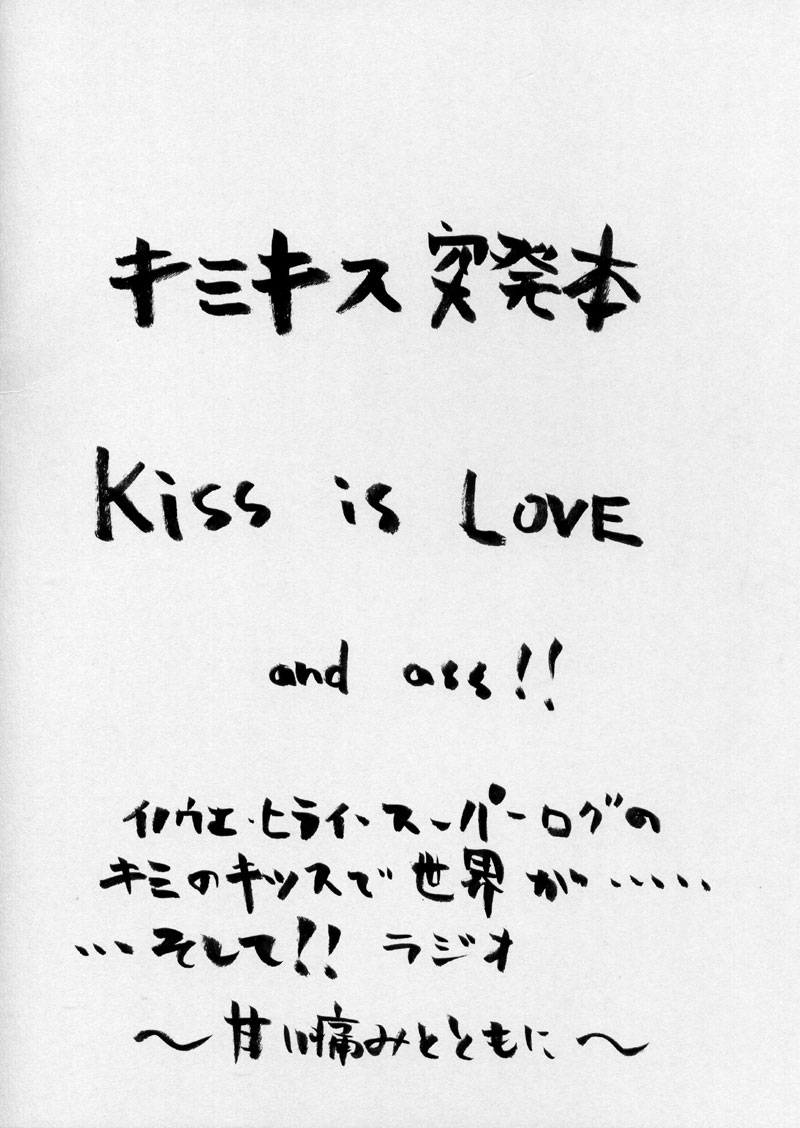 キミキス 突発本
Kiss is LOVE
and ass!!
イノウエ・ヒライ・スーパーログの
キミのキッスで世界が……
…そして!! ラジオ
～甘い痛みとともに～